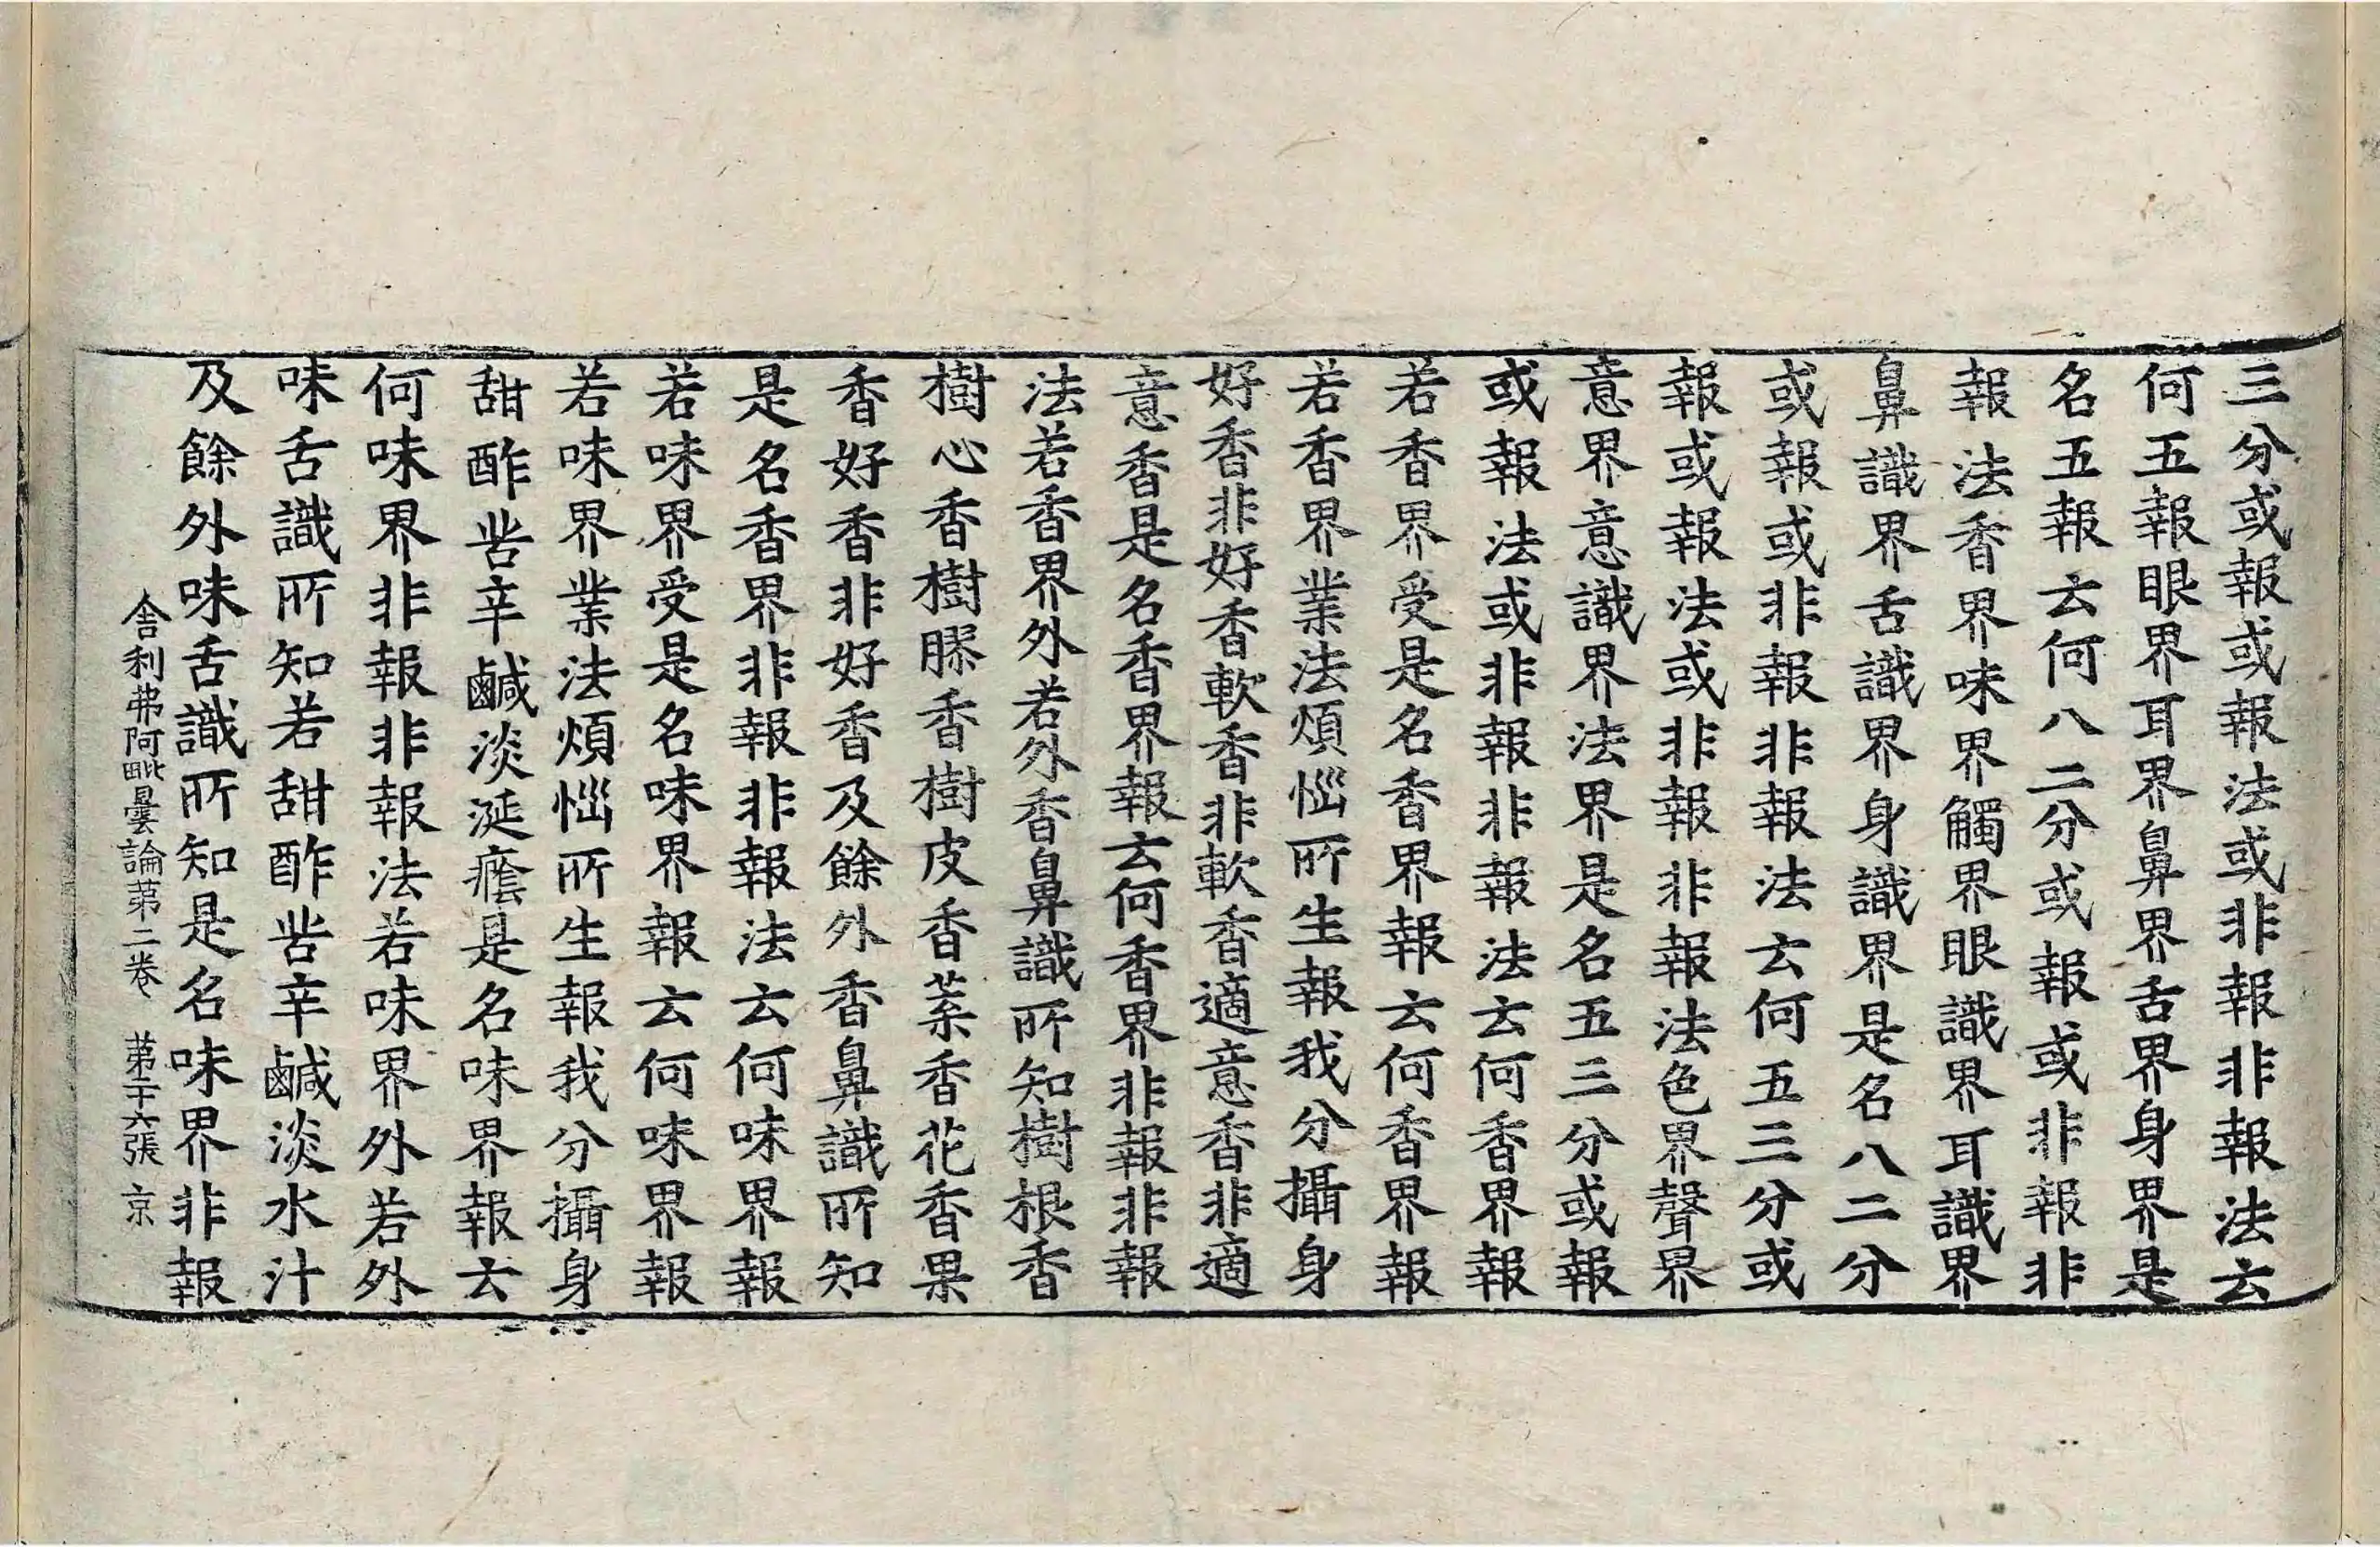 三分或報或報法或非報非報法云
何五報眼界耳界鼻界舌界身界是
名五報云何八二分或報或非報非
報法香界味界觸界眼識界耳識界
鼻識界舌識界身識界是名八二分
或報或非報非報法云何五三分或
報或報法或非報非報法色界聲界
意界意識界法界是名五三分或報
或報法或非報非報法云何香界報
若香界受是名香界報云何香界報
若香界業法煩惱所生報我分攝身
好香非好香軟香非軟香適意香非適
意香是名香界報云何香界非報非報
法若香界外若外香鼻識所知樹根香
樹心香樹膠香樹皮香葉香花香果
香好香非好香及餘外香鼻識所知
是名香界非報非報法云何味界報
若味界受是名味界報云何味界報
若味界業法煩惱所生報我分攝身
甜酢苦辛鹹淡涎癊是名味界報云
何味界非報非報法若味界外若外
味舌識所知若甜酢苦辛鹹淡水汁
及餘外味舌識所知是名味界非報
舍利弗阿毗曇論第二卷 第二十六張 京